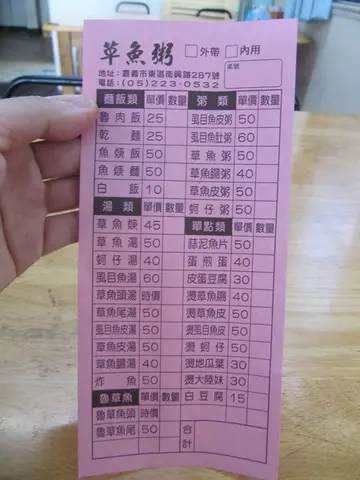 草魚粥 □外帶 □內用
地址:嘉義市東區南興路287號
電話:(05)223-0532
桌號
麵飯類 單價 數量 粥類 單價 數量
魯肉飯 25 虱目魚皮粥 50
乾麵 25 虱目魚肚粥 60
魚焿飯 50 草魚粥 50
魚焿麵 50 草魚腸粥 40
白飯 10 草魚皮粥 50
湯類 單價 數量 蚵仔粥 50
草魚焿 45 單點類 單價 數量
草魚湯 50 蒜泥魚片 50
蚵仔湯 40 蛋煎蛋 40
虱目魚湯 60 皮蛋豆腐 30
草魚頭湯 時價 燙草魚腸 40
草魚尾湯 50 燙草魚皮 50
虱目魚皮湯 50 燙虱目魚皮 50
草魚皮湯 50 燙蚵仔 50
草魚腸湯 40 燙地瓜葉 30
炸魚 50 燙大陸妹 30
魯草魚 單價 數量 白豆腐 15
魯草魚頭 時價
魯草魚尾 50 合計